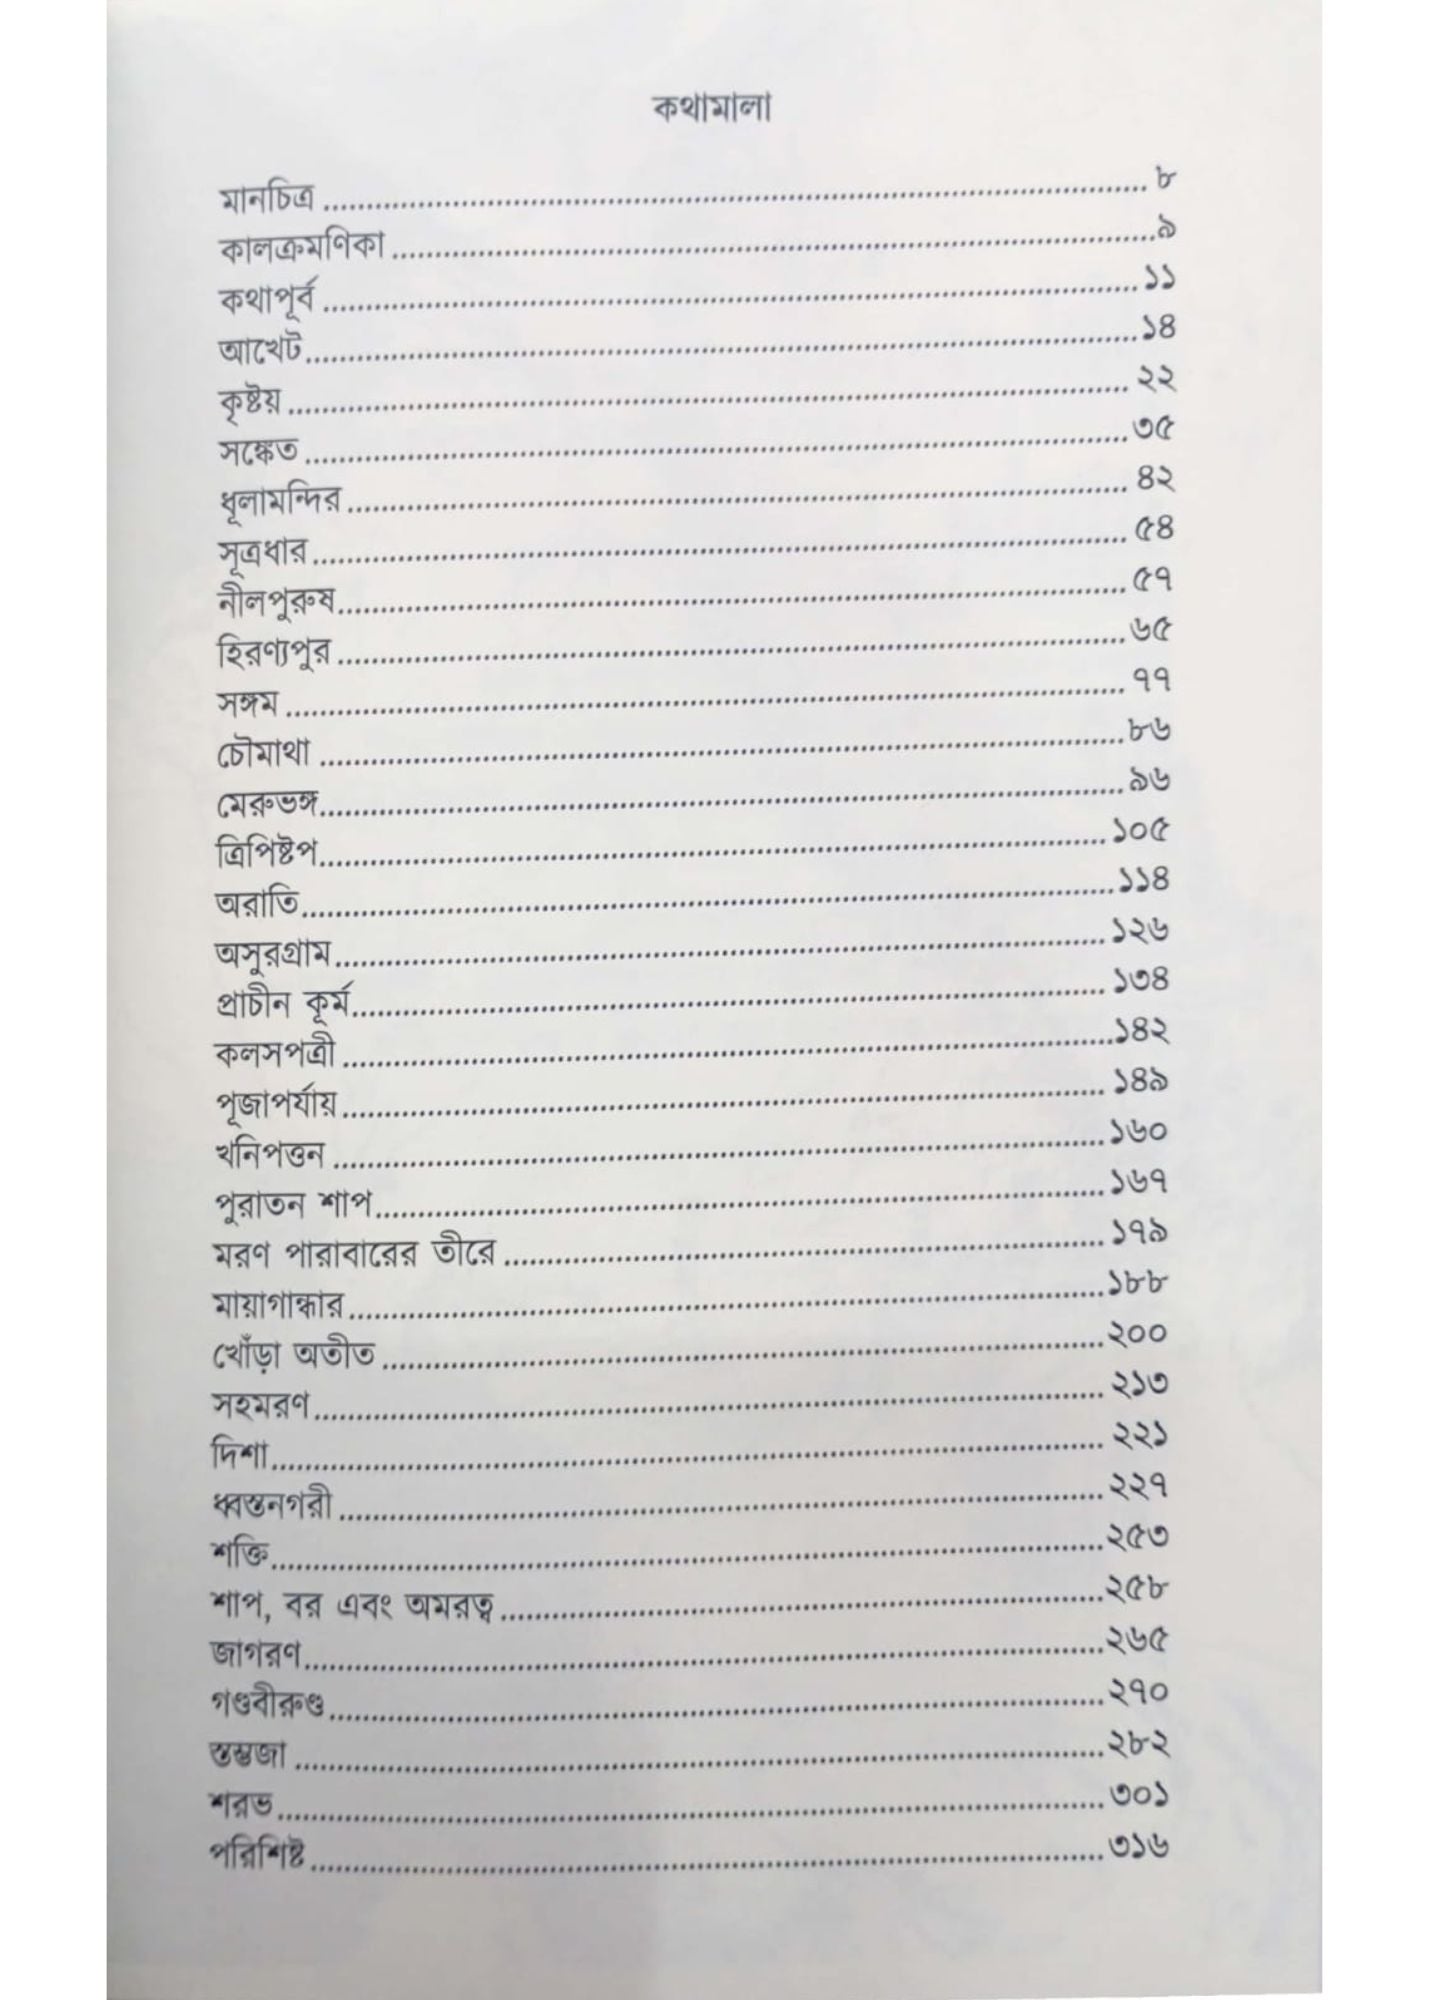 কথামালা
মানচিত্র ........ ৮
কালক্রমণিকা ........ ৯
কথাপূর্ব ........ ১১
আখেট ........ ১৪
কৃষ্টয় ........ ২২
সঙ্কেত ........ ৩৫
ধূলামন্দির ........ ৪২
সূত্রধার ........ ৫৪
নীলপুরুষ ........ ৫৭
হিরণ্যপুর ........ ৬৫
সঙ্গম ........ ৭৭
চৌমাথা ........ ৮৬
মেরুভঙ্গ ........ ৯৬
ত্রিপিষ্টপ ........ ১০৫
অরাতি ........ ১১৪
অসুরগ্রাম ........ ১২৬
প্রাচীন কূর্ম ........ ১৩৪
কলসপত্রী ........ ১৪২
পূজাপর্যায় ........ ১৪৯
খনিপত্তন ........ ১৬০
পুরাতন শাপ ........ ১৬৭
মরণ পারাবারের তীরে ........ ১৭৯
মায়াগান্ধার ........ ১৮৮
খোঁড়া অতীত ........ ২০০
সহমরণ ........ ২১৩
দিশা ........ ২২১
ধ্বস্তনগরী ........ ২২৭
শক্তি ........ ২৫৩
শাপ, বর এবং অমরত্ব ........ ২৫৮
জাগরণ ........ ২৬৫
গণ্ডবীরুণ্ড ........ ২৭০
স্তম্ভজা ........ ২৮২
শরভ ........ ৩০১
পরিশিষ্ট ........ ৩১৬